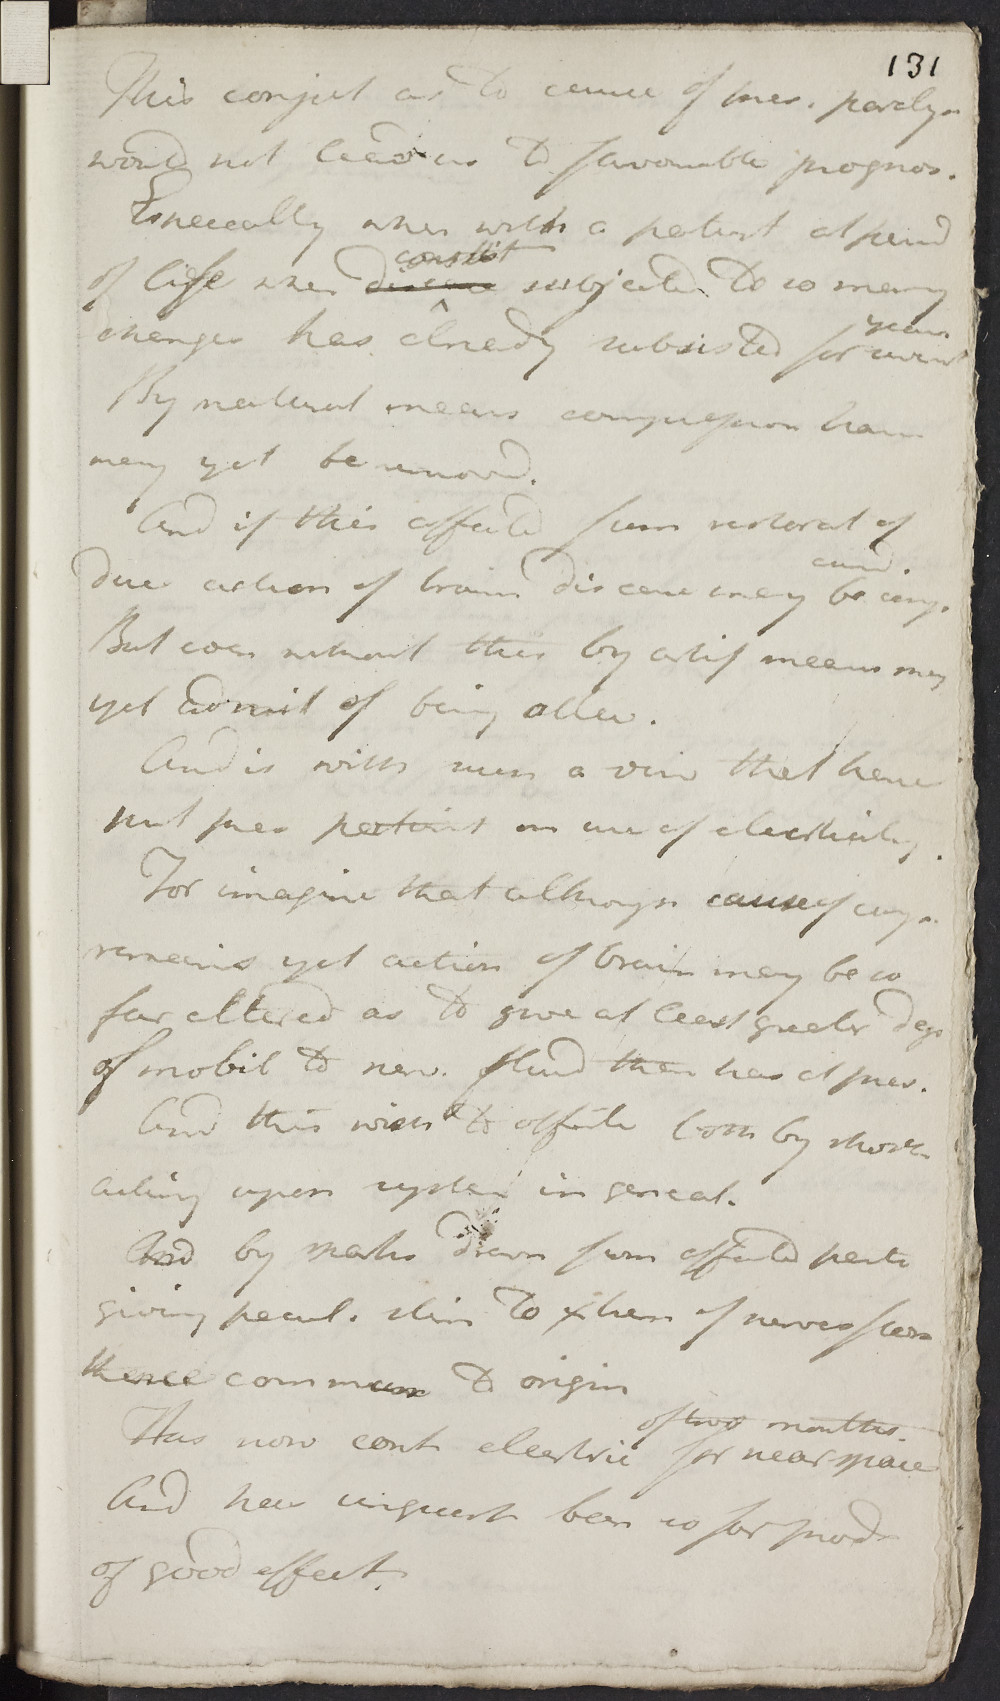 131
This conject as to cause of pres. paralys.
would not lead us to favourable prognos.
Especially when with a patient at period
of life when disease constit subjected to so many
changes has already subsisted for several years
By natural means compression however
may yet be remov'd.
And if this effected from restorat of
due action of brain disease may be comp. cured.
But even without this by artif means may
yet admit of being allev.
And is with such a view that have
put pres patient on use of electricity.
For imagine that although cause of comp.
remains yet action of brain may be so
far altered as to give at least greater deg
of mobil to nerv. fluid than has at pres.
And this wish to effect both by shocks
acting upon system in general.
And by sparks drawn from affected parts
giving pecul. stim to extrem of nerves from
thence commun to origin
Has now cont electric for near space of two months.
And has unquest been so far prod
of good effect.